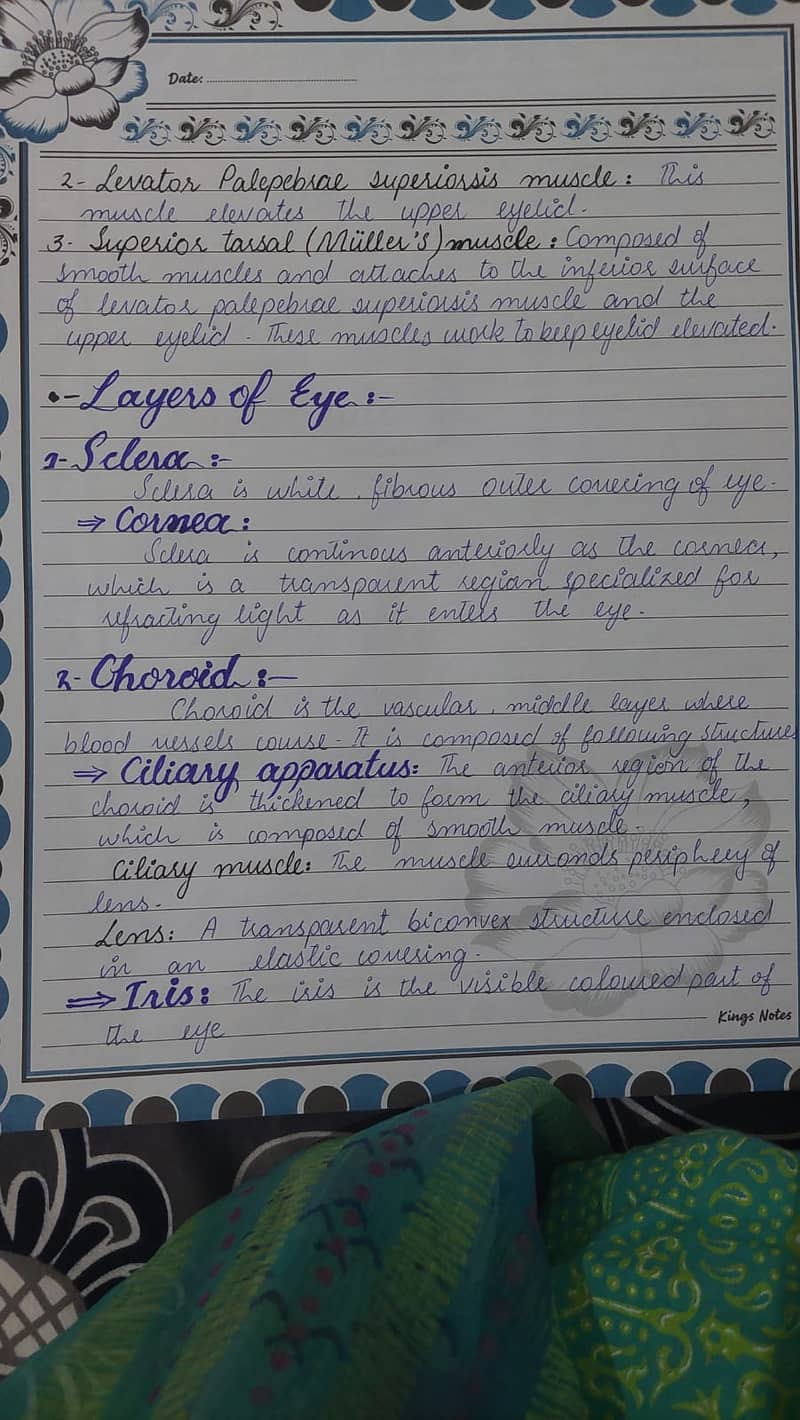 Date:
2- Levator Palepebrae superiorsis muscle: This
muscle elevates the upper eyelid.
3- Superior tarsal (Müller's) muscle: Composed of
smooth muscles and attaches to the inferior surface
of levator palepebrae superiorsis muscle and the
upper eyelid. These muscles work to keep eyelid elevated.
•-Layers of Eye:-
1- Sclera:-
Sclera is white, fibrous outer covering of eye.
⇒ Cornea:
Sclera is continous anteriorly as the cornea,
which is a transparent region specialized for
refracting light as it enters the eye.
2- Choroid:-
Choroid is the vascular, middle layer where
blood vessels course. It is composed of following structures
⇒ Ciliary apparatus: The anterior region of the
choroid is thickened to form the ciliary muscle,
which is composed of smooth muscle.
Ciliary muscle: The muscle surronds periphery of
lens.
Lens: A transparent biconvex structure enclosed
in an elastic covering.
⇒ Iris: The iris is the visible coloured part of
the eye
Kings Notes